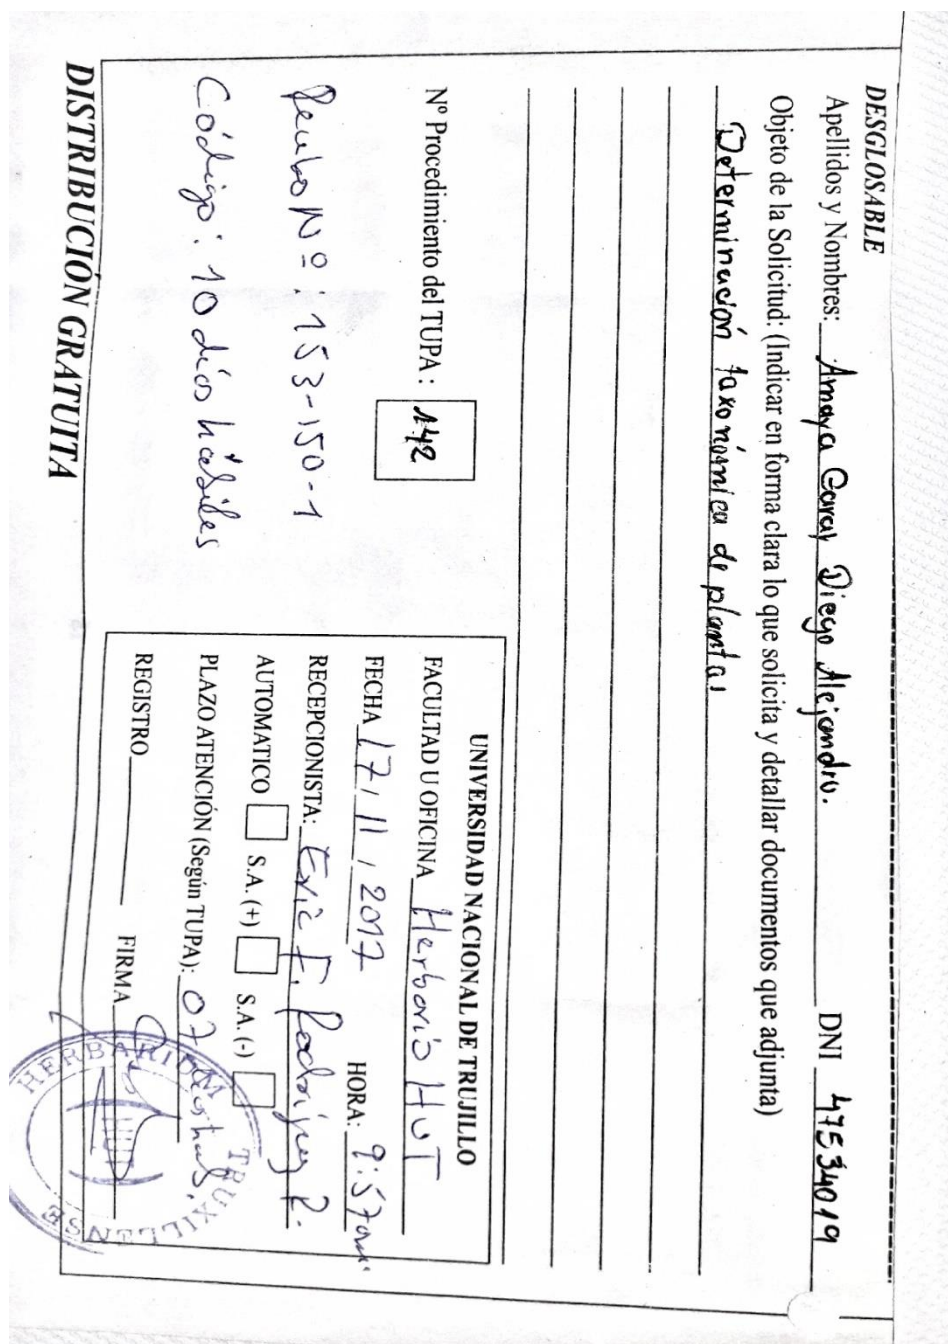 DESGLOSABLE
Apellidos y Nombres: Amaya Garay Diego Alejandro. DNI 47534019
Objeto de la Solicitud: (Indicar en forma clara lo que solicita y detallar documentos que adjunta)
Determinación taxonómica de plantas
Nº Procedimiento del TUPA: 142
Recibo Nº: 153-150-1
Código: 10 días hábiles
UNIVERSIDAD NACIONAL DE TRUJILLO
FACULTAD U OFICINA Herbario HUT
FECHA 17, 11, 2017 HORA: 9:57am
RECEPCIONISTA: Eric F. Rodríguez R.
AUTOMATICO S.A. (+) S.A. (-)
PLAZO ATENCIÓN (Según TUPA): 07
REGISTRO FIRMA
HERBARIUM TRUXILLENSE
DISTRIBUCIÓN GRATUITA